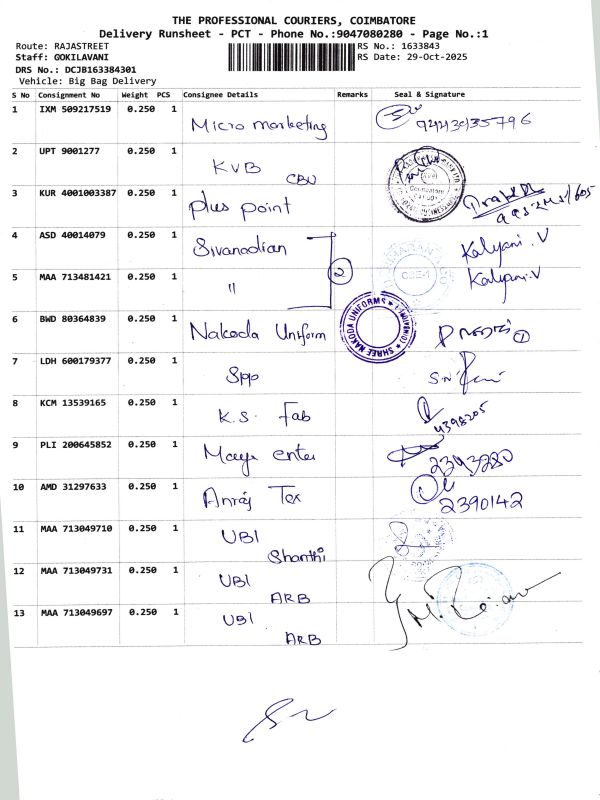 THE PROFESSIONAL COURIERS, COIMBATORE
Delivery Runsheet - PCT - Phone No.:9047080280 - Page No.:1
Route: RAJASTREET RS No.: 1633843
Staff: GOKILAVANI RS Date: 29-Oct-2025
DRS No.: DCJB163384301
Vehicle: Big Bag Delivery
S No Consignment No Weight PCS Consignee Details Remarks Seal & Signature
1 IXM 509217519 0.250 1 Micro marketing 9443435796
2 UPT 9001277 0.250 1 KVB CBU
3 KUR 4001003387 0.250 1 plus point
4 ASD 40014079 0.250 1 Sivanadian Kalyani.V
2
5 MAA 713481421 0.250 1 " Kalyani.V
6 BWD 80364839 0.250 1 Nakoda Uniform SHREE NAKODA UNIFORMS
7 LDH 600179377 0.250 1 Spp
8 KCM 13539165 0.250 1 K.S. Fab 4398205
9 PLI 200645852 0.250 1 enter 2393280
10 AMD 31297633 0.250 1 Tex 2390142
11 MAA 713049710 0.250 1 UBI Shanthi
12 MAA 713049731 0.250 1 UBI ARB
13 MAA 713049697 0.250 1 UBI ARB